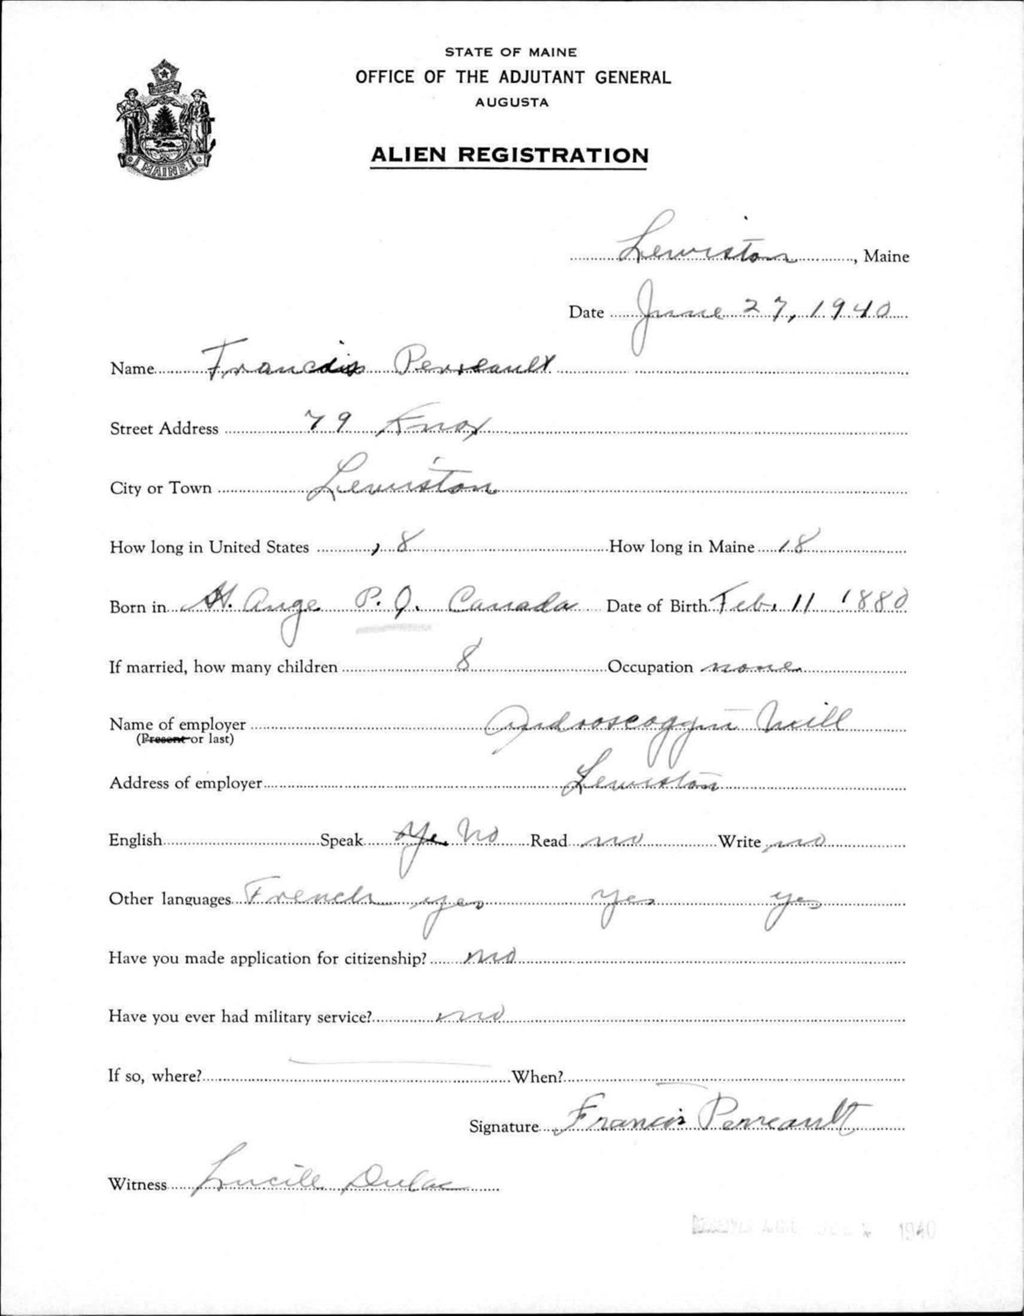 STATE OF MAINE
OFFICE OF THE ADJUTANT GENERAL
AUGUSTA
ALIEN REGISTRATION
MAINE
Lewiston, Maine
Date June 27, 1940
Name Francis Perreault
Street Address 79 Knox
City or Town Lewiston
How long in United States 18 How long in Maine 18
Born in St. Ange P.Q. Canada Date of Birth Feb. 11 1880
If married, how many children 8 Occupation none
Name of employer Androscoggin Mill
(Present or last)
Address of employer Lewiston
English Speak No Read no Write no
Other languages French yes yes yes
Have you made application for citizenship? no
Have you ever had military service? no
If so, where? When?
Signature Francis Perreault
Witness Lucile Dulac
1940